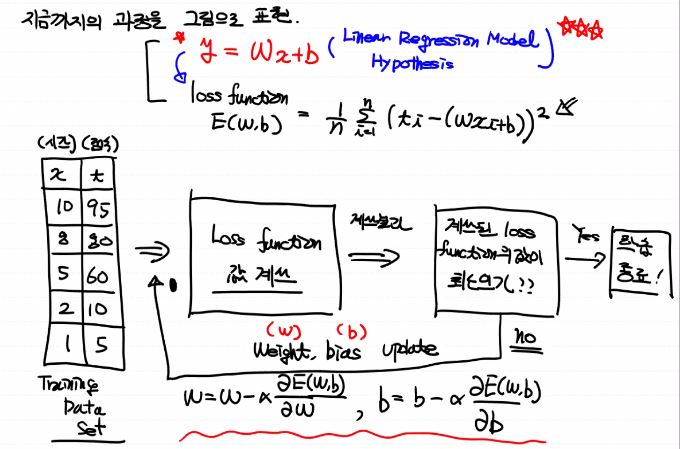 지금까지의 과정을 그림으로 표현.
* y = Wx+b (Linear Regression Model Hypothesis) ☆☆☆
loss function
E(W,b) = 1/n Σ(i=1, n) (ti-(Wxi+b))²
(시간) (점수)
x t
10 95
8 80
5 60
2 10
1 5
Training
Data
Set
⇒
Loss function
값 계산
⇒
계산된 loss
function의 값이
최소인가??
Yes
학습
종료!
no
(W) (b)
Weight, bias update
W = W - α ∂E(W,b)/∂W , b = b - α ∂E(W,b)/∂b